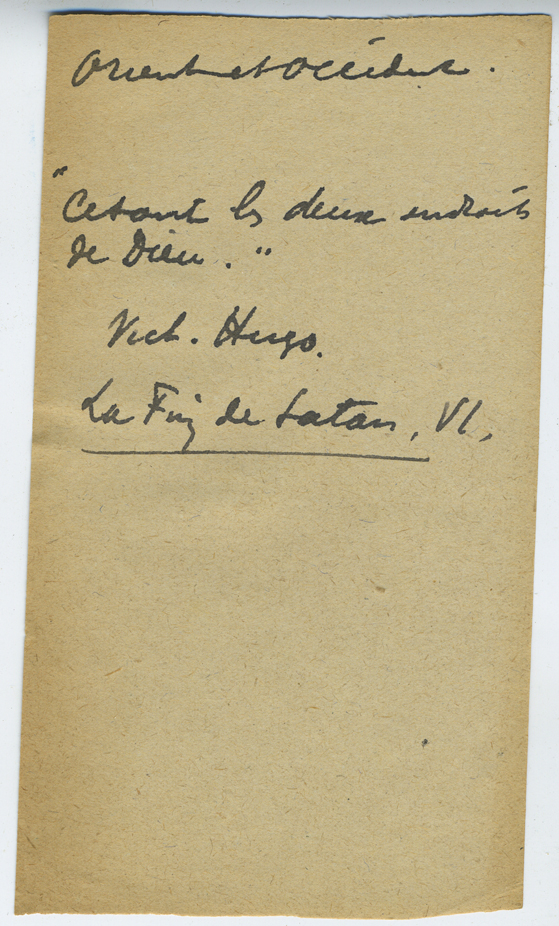 Orient et Occident.
"Ce sont les deux endroits
de Dieu."
Vict. Hugo.
La Fin de Satan, VI,